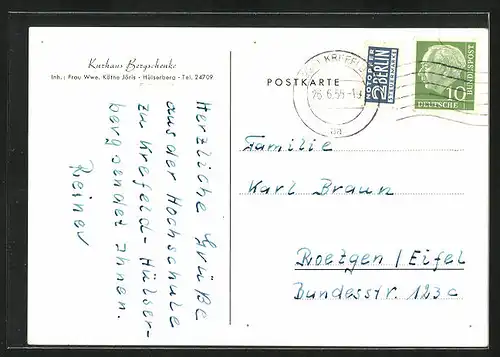 Kurhaus Bergschenke
Inh.: Frau Wwe. Käthe Jöris - Hülserberg - Tel. 24709
Herzliche Grüße
aus der Hochschule
zu Krefeld-Hülser-
berg sendet Ihnen.
Reiner
POSTKARTE
KREFELD
26.6.55-19
aa
NOTOPFER
2 BERLIN
STEUERMARKE
DEUTSCHE
BUNDESPOST
10
Familie
Karl Braun
Roetgen / Eifel
Bundesstr. 123c